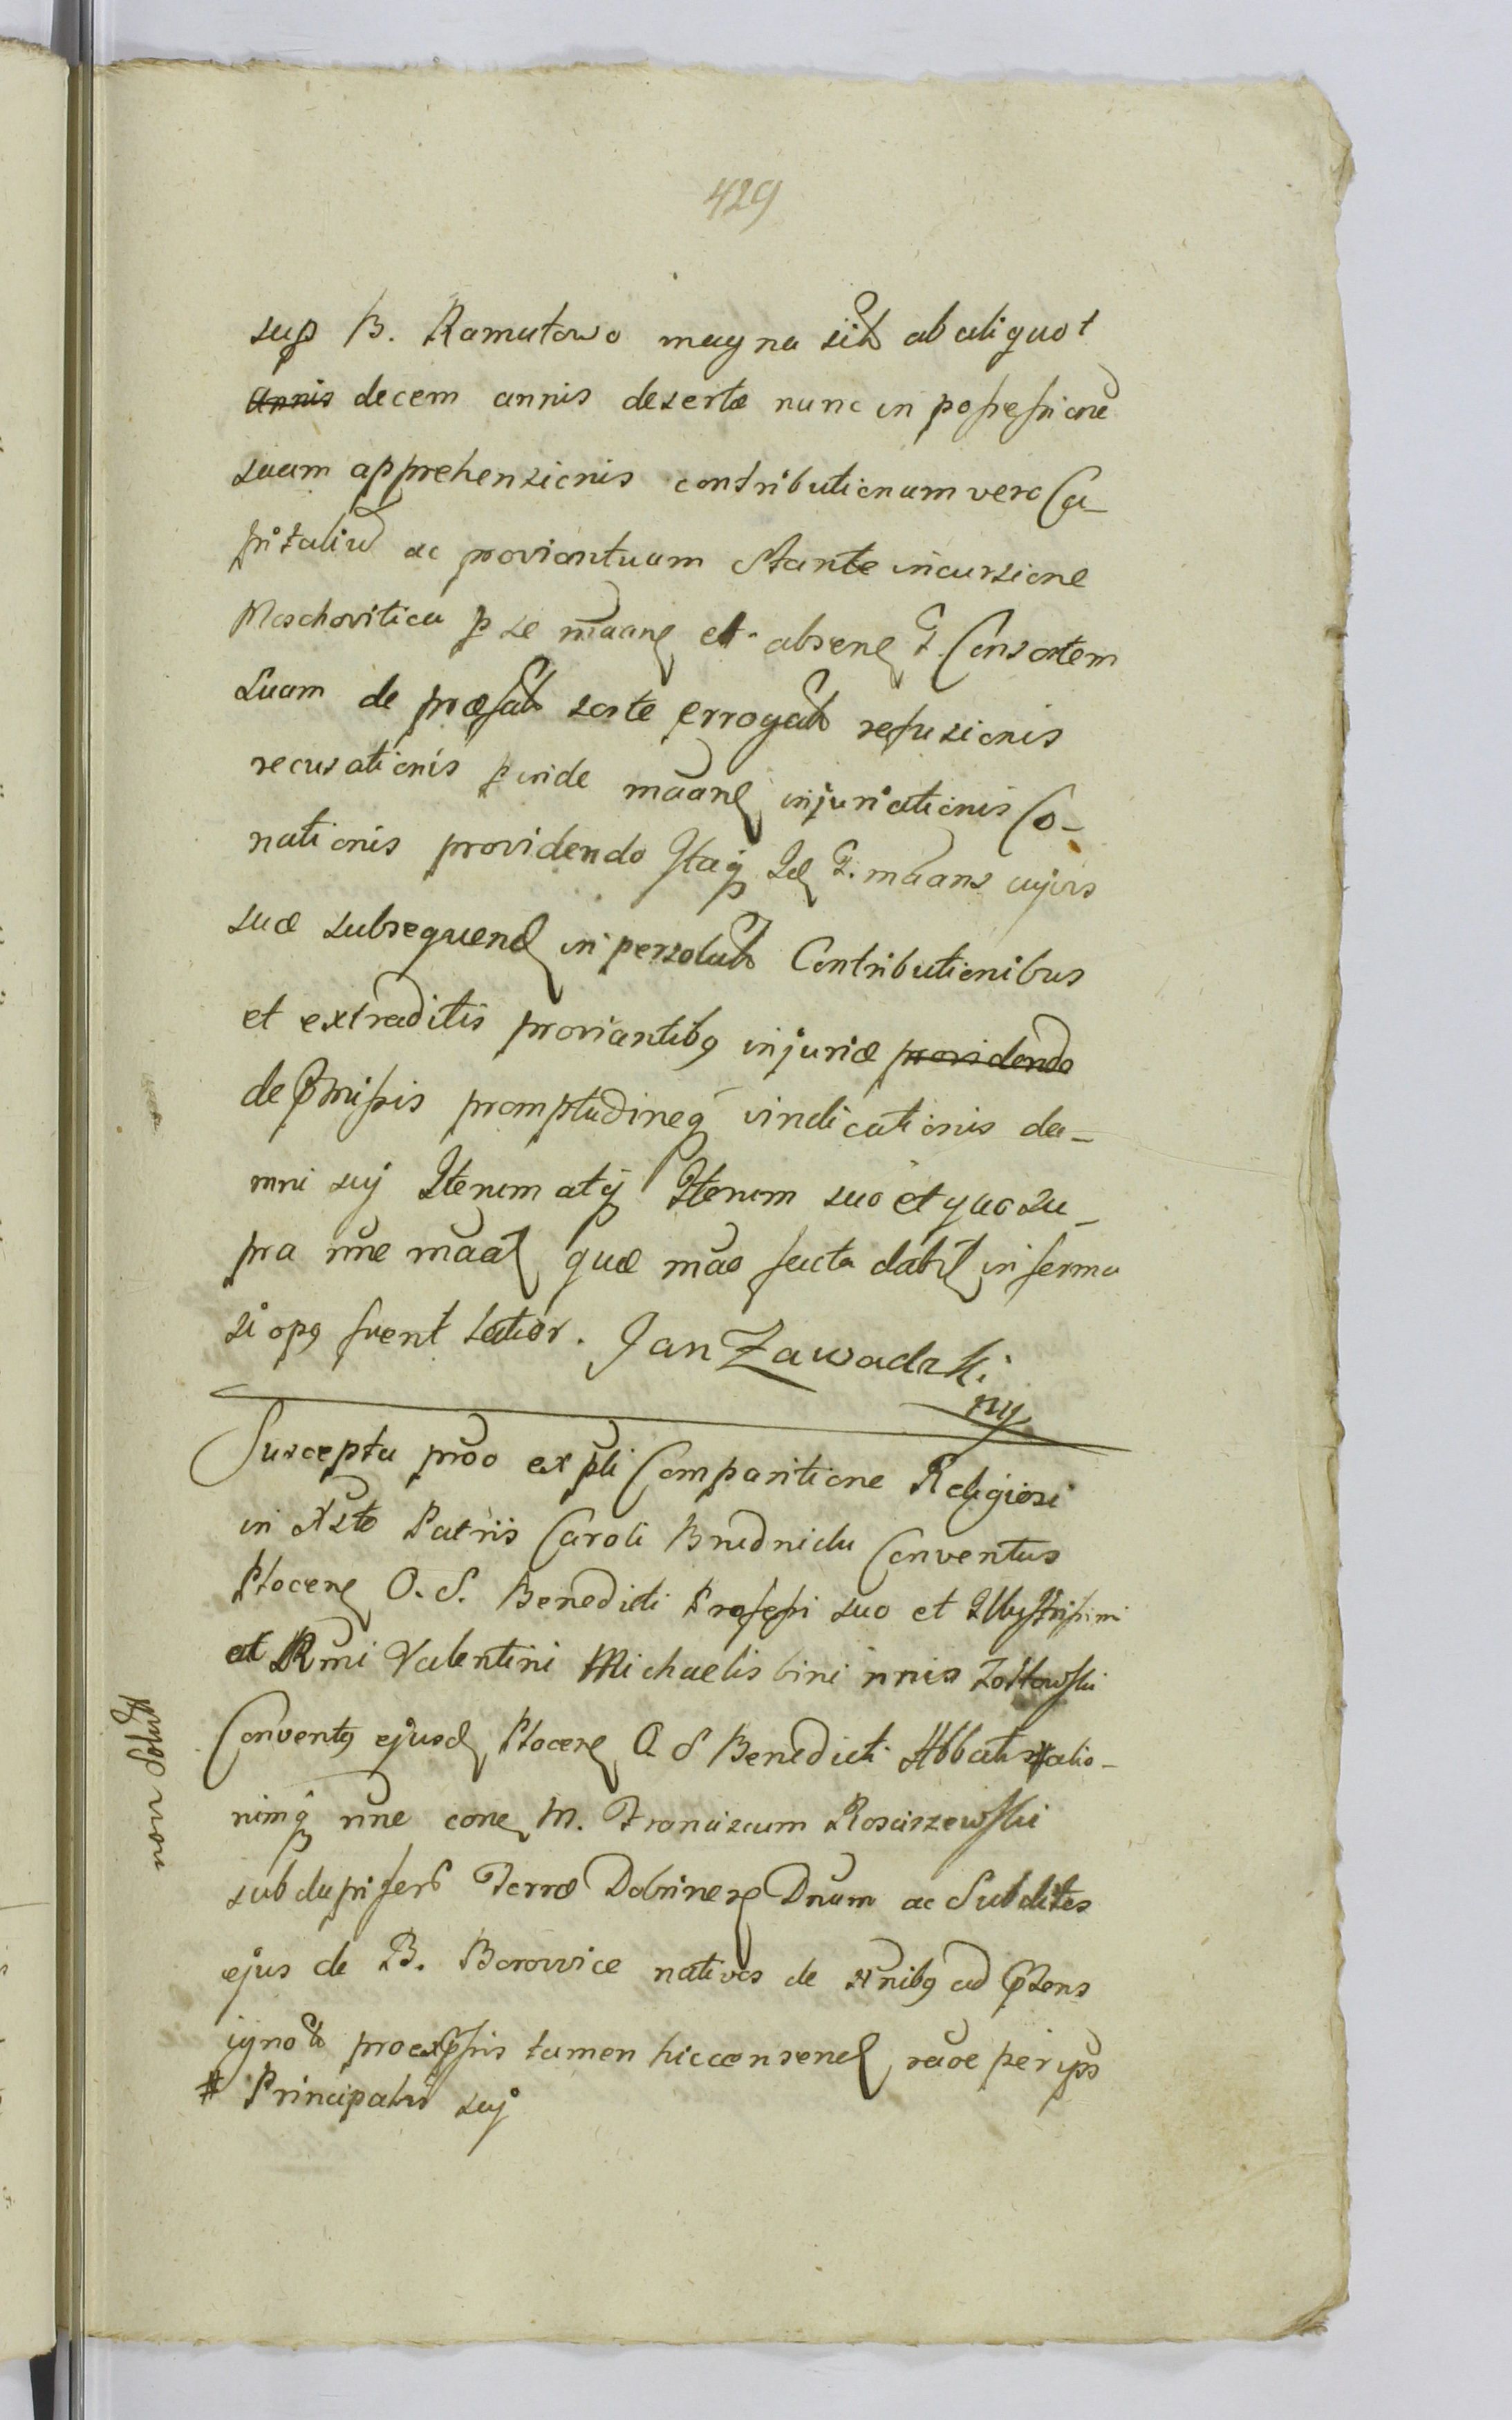 429
sup B. Ramutowo magna sit ab aliquot
annis decem annis desertæ nunc in possessione
suam apprehensionis contributionum vero Ca-
pitaliu ac proviantuum stante incursione
Moschovitica p se maane et absene G. Consortem
Suam de præfat sorte erogat refusionis
recusationis p inde maane injuriationis Co-
nationis providendo Itaq Id G. maans cujus
suæ subsequend in persolut Contributionibus
et extraditis proviantibq injuriæ providendo
de pmissis promptudineq vindicationis da-
mni suj Iterum atq Iterum suo et quo su-
pra nne maat quæ mao facta dabit in forma
si opq fuent latior. Jan Zawadzki
mp
Suscepta prao ex pti Comparitione Religiosi
in Xsto Patris Caroli Brudnicki Conventus
Plocene O. S. Benedicti Professi suo et Illustrissimi
et Rmi Valentini Michaelis bini nnis Zołtowski
Conventq ejusd Plocene O. S Benedicti Abbatis # alio-
rumq nne cone M. Franciscum Rosciszewski
subdapiferu Terræ Dobrinens Dnum ac Subditos
ejus de B. Borowice nativos de nnibq ad psens
ignot pro expssis tamen hic censend raoe per ips
# Principaliu suj
non